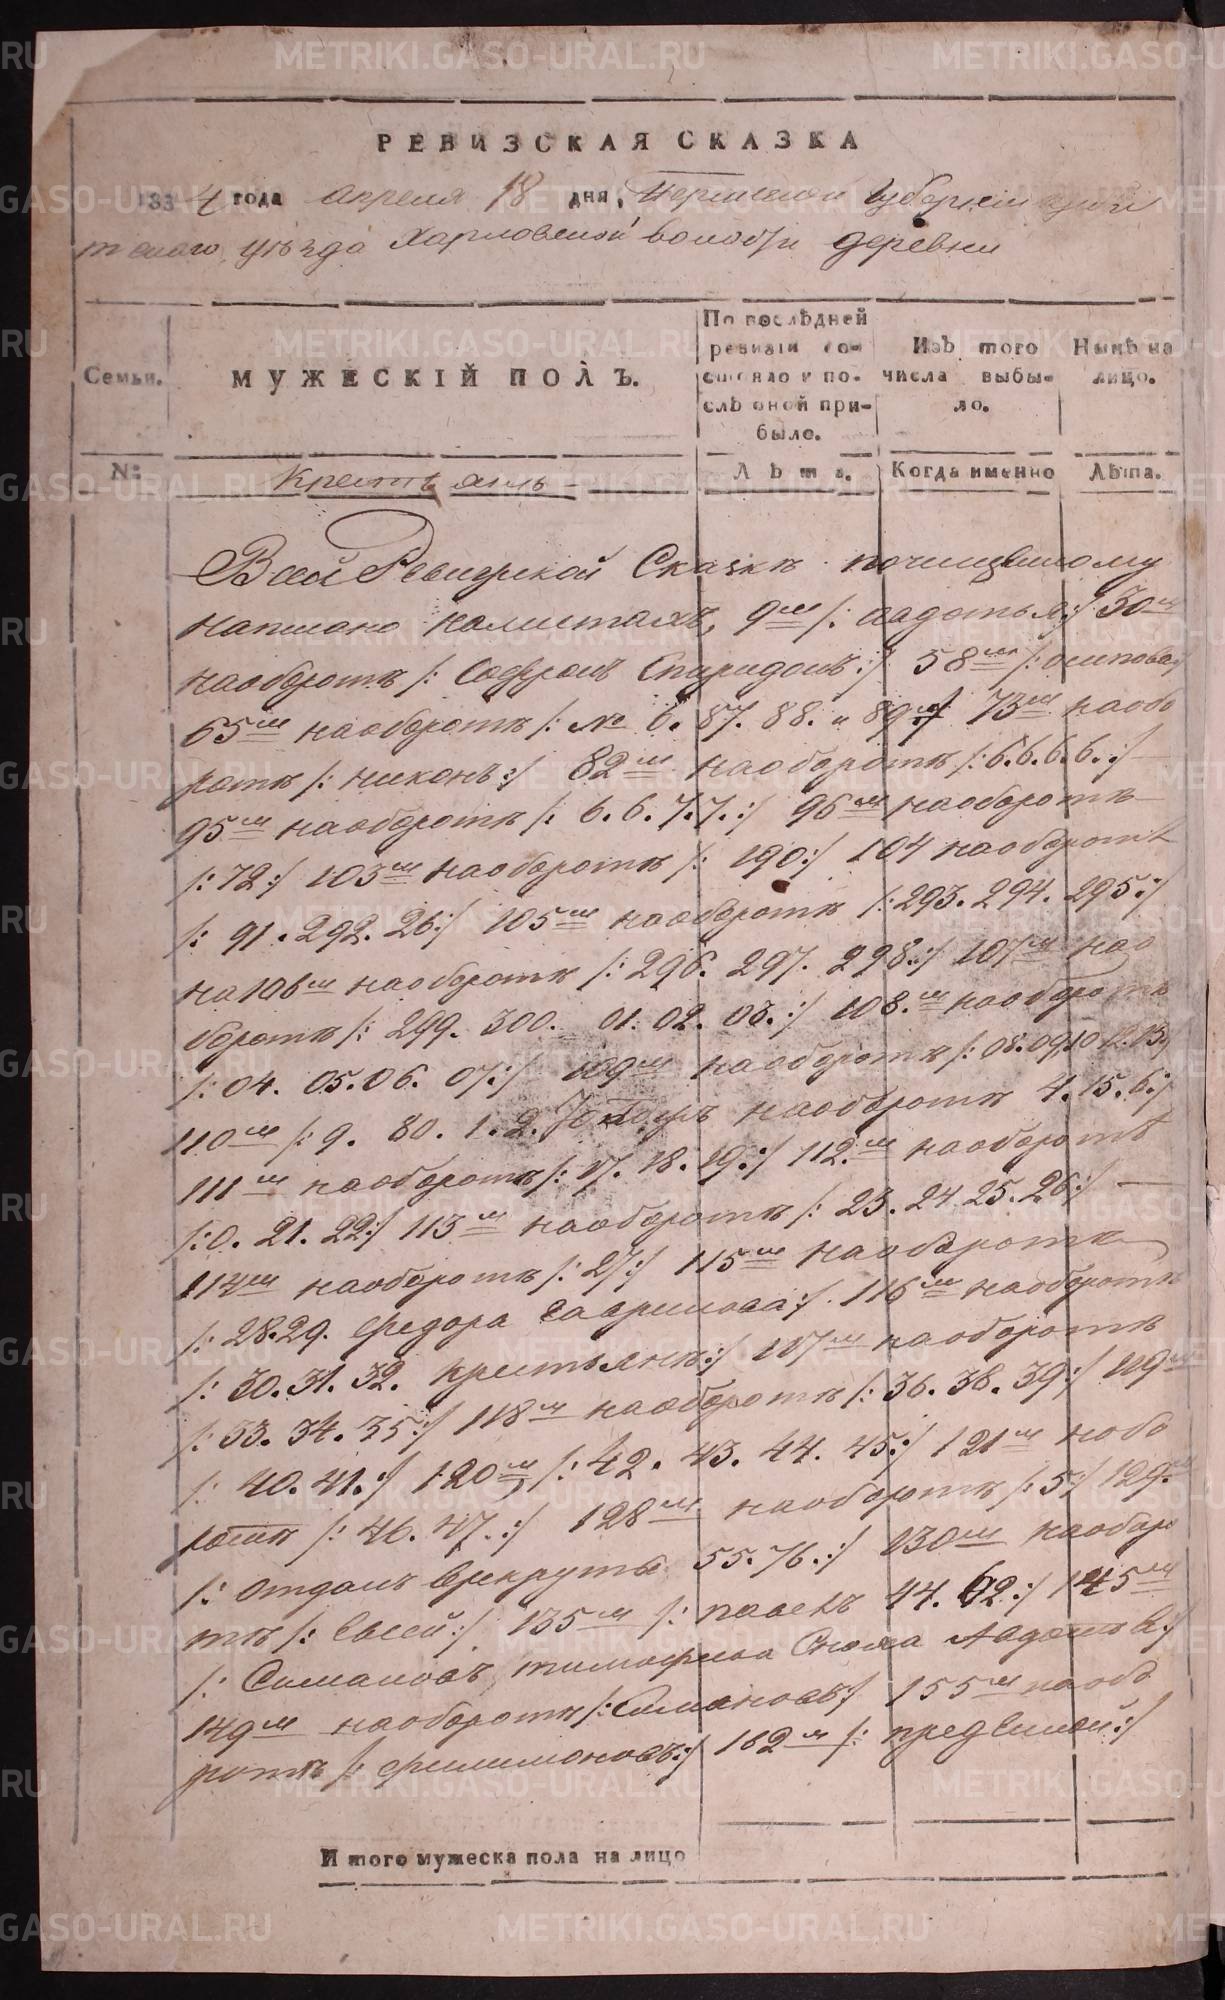 METRIKI.GASO-URAL.RU
РЕВИЗСКАЯ СКАЗКА
1834 года апреля 18 дня, Пермской Губернии Ирбит
тскаго уѣзда Харловской волости деревни
Семьи.
МУЖЕСКІЙ ПОЛЪ.
По послѣдней ревизіи состояло и послѣ оной прибыло.
Изъ того числа выбыло.
Нынѣ на лицо.
№:
Крестьянъ
Лѣта.
Когда именно
Лѣта.
Всей Ревизской Сказкѣ почищенному
написано налистахъ, 9м /: авдотья :/ 50м
наоборотѣ /: Софронъ Спиридонъ :/ 58м /: осипова :/
65м наоборотѣ /: № 6. 87. 88. и 89 :/ 73м наобо
ротѣ /: никонъ :/ 82м наоборотѣ /: 6.6.6.6. :/
95м наоборотѣ /: 6.6.7.7. :/ 96м наоборотѣ
/: 72 :/ 103м наоборотѣ /: 190 :/ 104 наоборотѣ
/: 91. 292. 26 :/ 105м наоборотѣ /: 293. 294. 295 :/
на 106м наоборотѣ /: 296. 297. 298 :/ 107м нао
боротѣ /: 299. 300. 01. 02. 03. :/ 108.м наоборотѣ
/: 04. 05. 06. 07 :/ 109м наоборотѣ /: 08. 09. 10 12. 13 :/
110м /: 9. 80. 1. 2. наоборотѣ 4. 15. 6 :/
111м наоборотѣ /: 17. 18. 19. :/ 112.м наоборотѣ
/: 0. 21. 22 :/ 113м наоборотѣ /: 23. 24. 25. 26 :/
114м наоборотѣ /: 27 :/ 115м наоборотѣ
/: 28. 29. Федора Гаврилова :/ 116м наоборотѣ
/: 30. 31. 32. крестьянъ :/ 117м наоборотѣ
/: 33. 34. 35 :/ 118м наоборотѣ /: 36. 38. 39 :/ 119м
/: 40. 41. :/ 120м /: 42. 43. 44. 45 :/ 121м нобо
ротѣ /: 46. 47. :/ 128м наоборотѣ /: 5 :/ 129.м
/: отданъ врекруты 55. 76. :/ 130м наобор
тѣ /: Евсей :/ 135м /: 44. 62 :/ 145м
/: Симановъ тимофѣва Авдотья :/
149м наоборотѣ /: Симановъ :/ 155м наобо
ротѣ /: филимоновъ :/ 162м /:
Итого мужеска пола на лицо